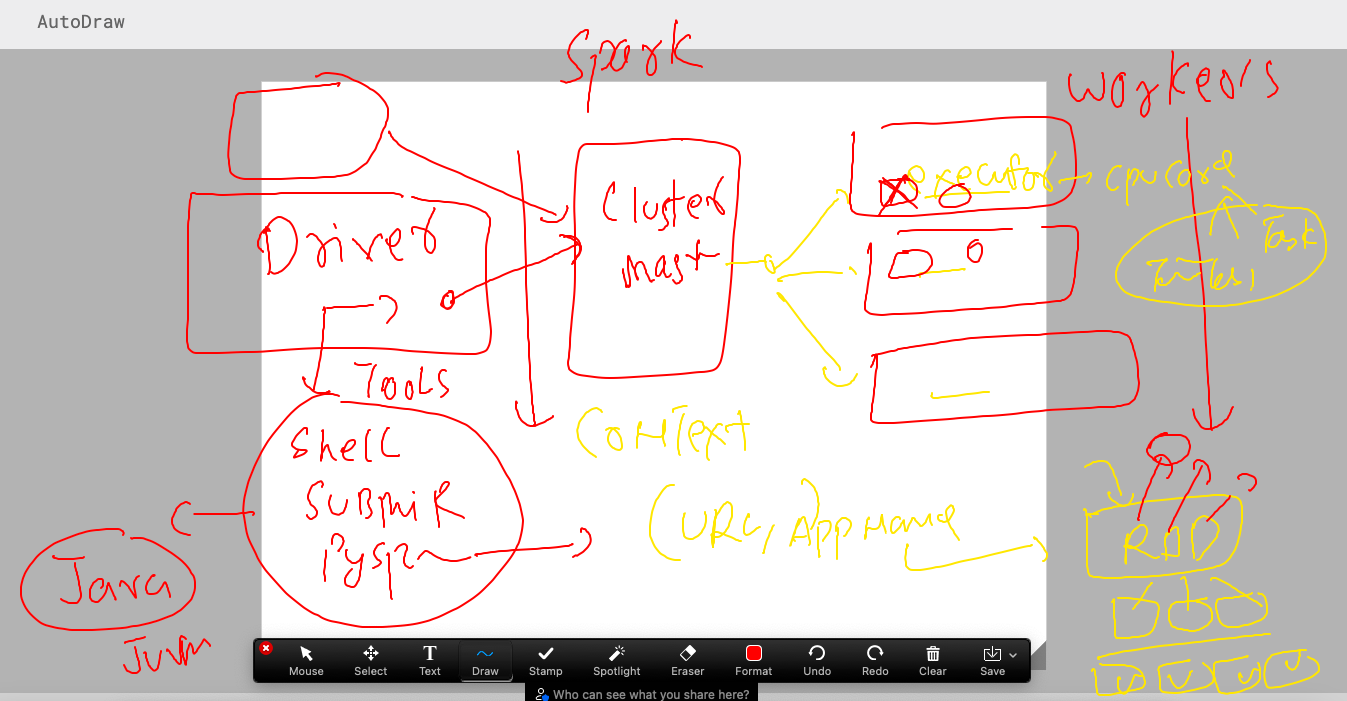 AutoDraw
Spark
workers
Driver
Cluster
mast
executor
cpu core
Task
Tools
Shell
SUBmiR
PySp
Java
Jvm
ConText
(URL, AppName
RDD
Mouse
Select
Text
Draw
Stamp
Spotlight
Eraser
Format
Undo
Redo
Clear
Save
Who can see what you share here?